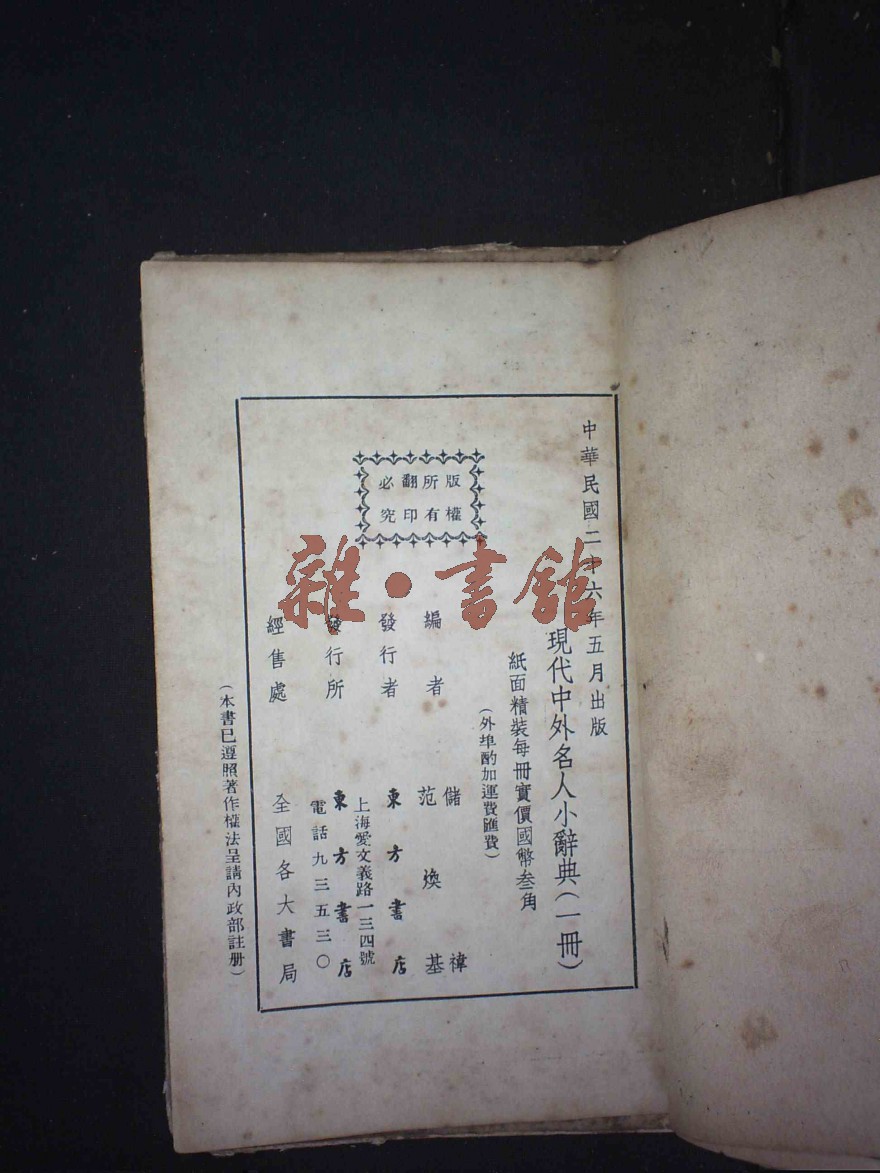 中華民國二十六年五月出版
現代中外名人小辭典(一冊)
紙面精裝每冊實價國幣叁角
(外埠酌加運費匯費)
版權
所有
翻印
必究
編者 儲褘
范煥基
發行者 東方書店
上海愛文義路一三四號
發行所 東方書店
電話九三五三〇
經售處 全國各大書局
(本書已遵照著作權法呈請內政部註册)
雜·書館